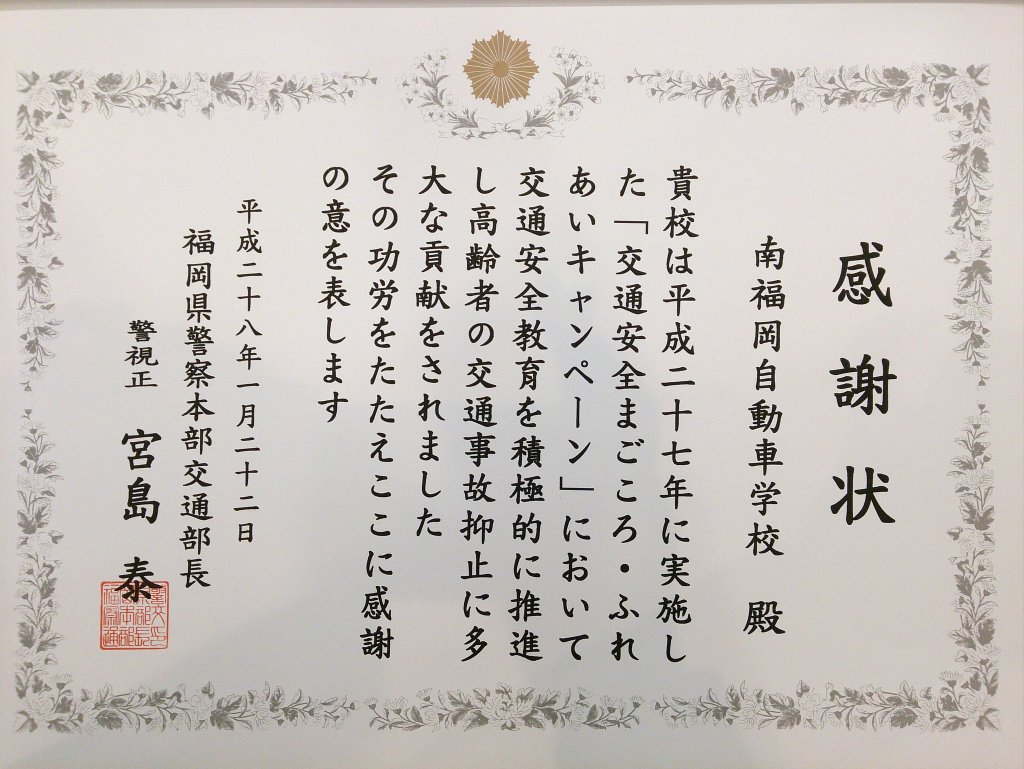 感謝状
南福岡自動車学校 殿
貴校は平成二十七年に実施し
た「交通安全まごころ・ふれ
あいキャンペーン」において
交通安全教育を積極的に推進
し高齢者の交通事故抑止に多
大な貢献をされました
その功労をたたえここに感謝
の意を表します
平成二十八年一月二十二日
福岡県警察本部交通部長
警視正 宮島 泰